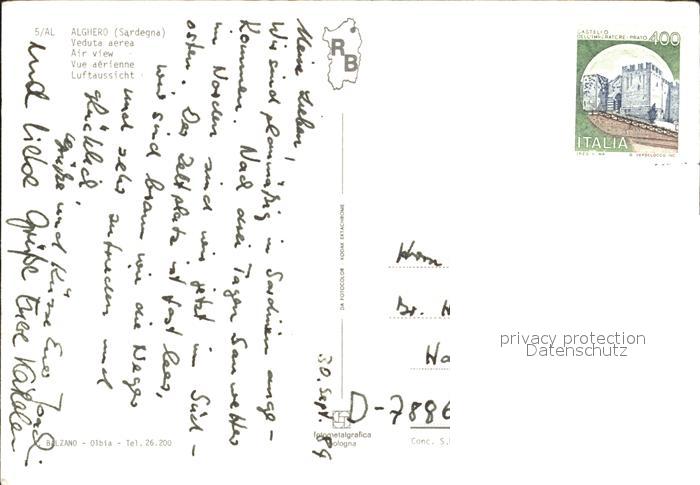 5/AL ALGHERO (Sardegna)
Veduta aerea
Air view
Vue aérienne
Luftaussicht
RB
CASTELLO DELL'IMPERATORE - PRATO 400
ITALIA
30. Sept. 84
Meine Lieben,
Wir sind planmäßig in Sardinien ange-
kommen. Nach drei Tagen Sauwetter
im Norden sind wir jetzt im Süd-
osten. Der Zeltplatz ist fast leer,
wir sind braun wie die Neger
und sehr zufrieden und
glücklich.
Grüße und Küsse Euer
und liebe Grüße Eure
DA FOTOCOLOR KODAK EKTACHROME
Herrn
Dr. H
Ha
D-7886
privacy protection
Datenschutz
BALZANO - Olbia - Tel. 26.200
fotometalgrafica
bologna
Conc. S.